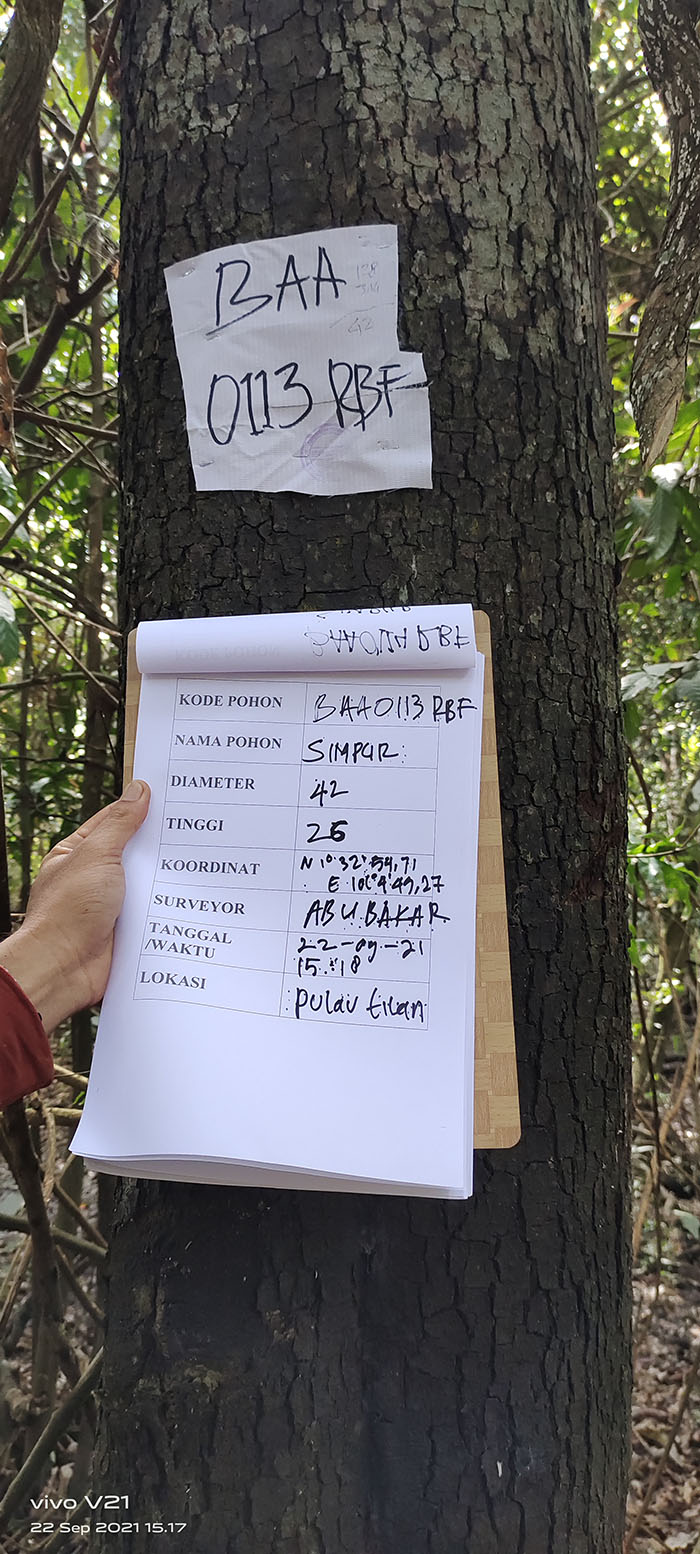 BAA
138
3.14
42
0113 RBF
KODE POHON BAA0113 RBF
NAMA POHON SIMPUR
DIAMETER 42
TINGGI 26
KOORDINAT N 1° 32' 54,71
E
SURVEYOR ABU BAKAR
TANGGAL /WAKTU 22-09-21
15:18
LOKASI PULAU tilan
vivo V21
22 Sep 2021 15.17